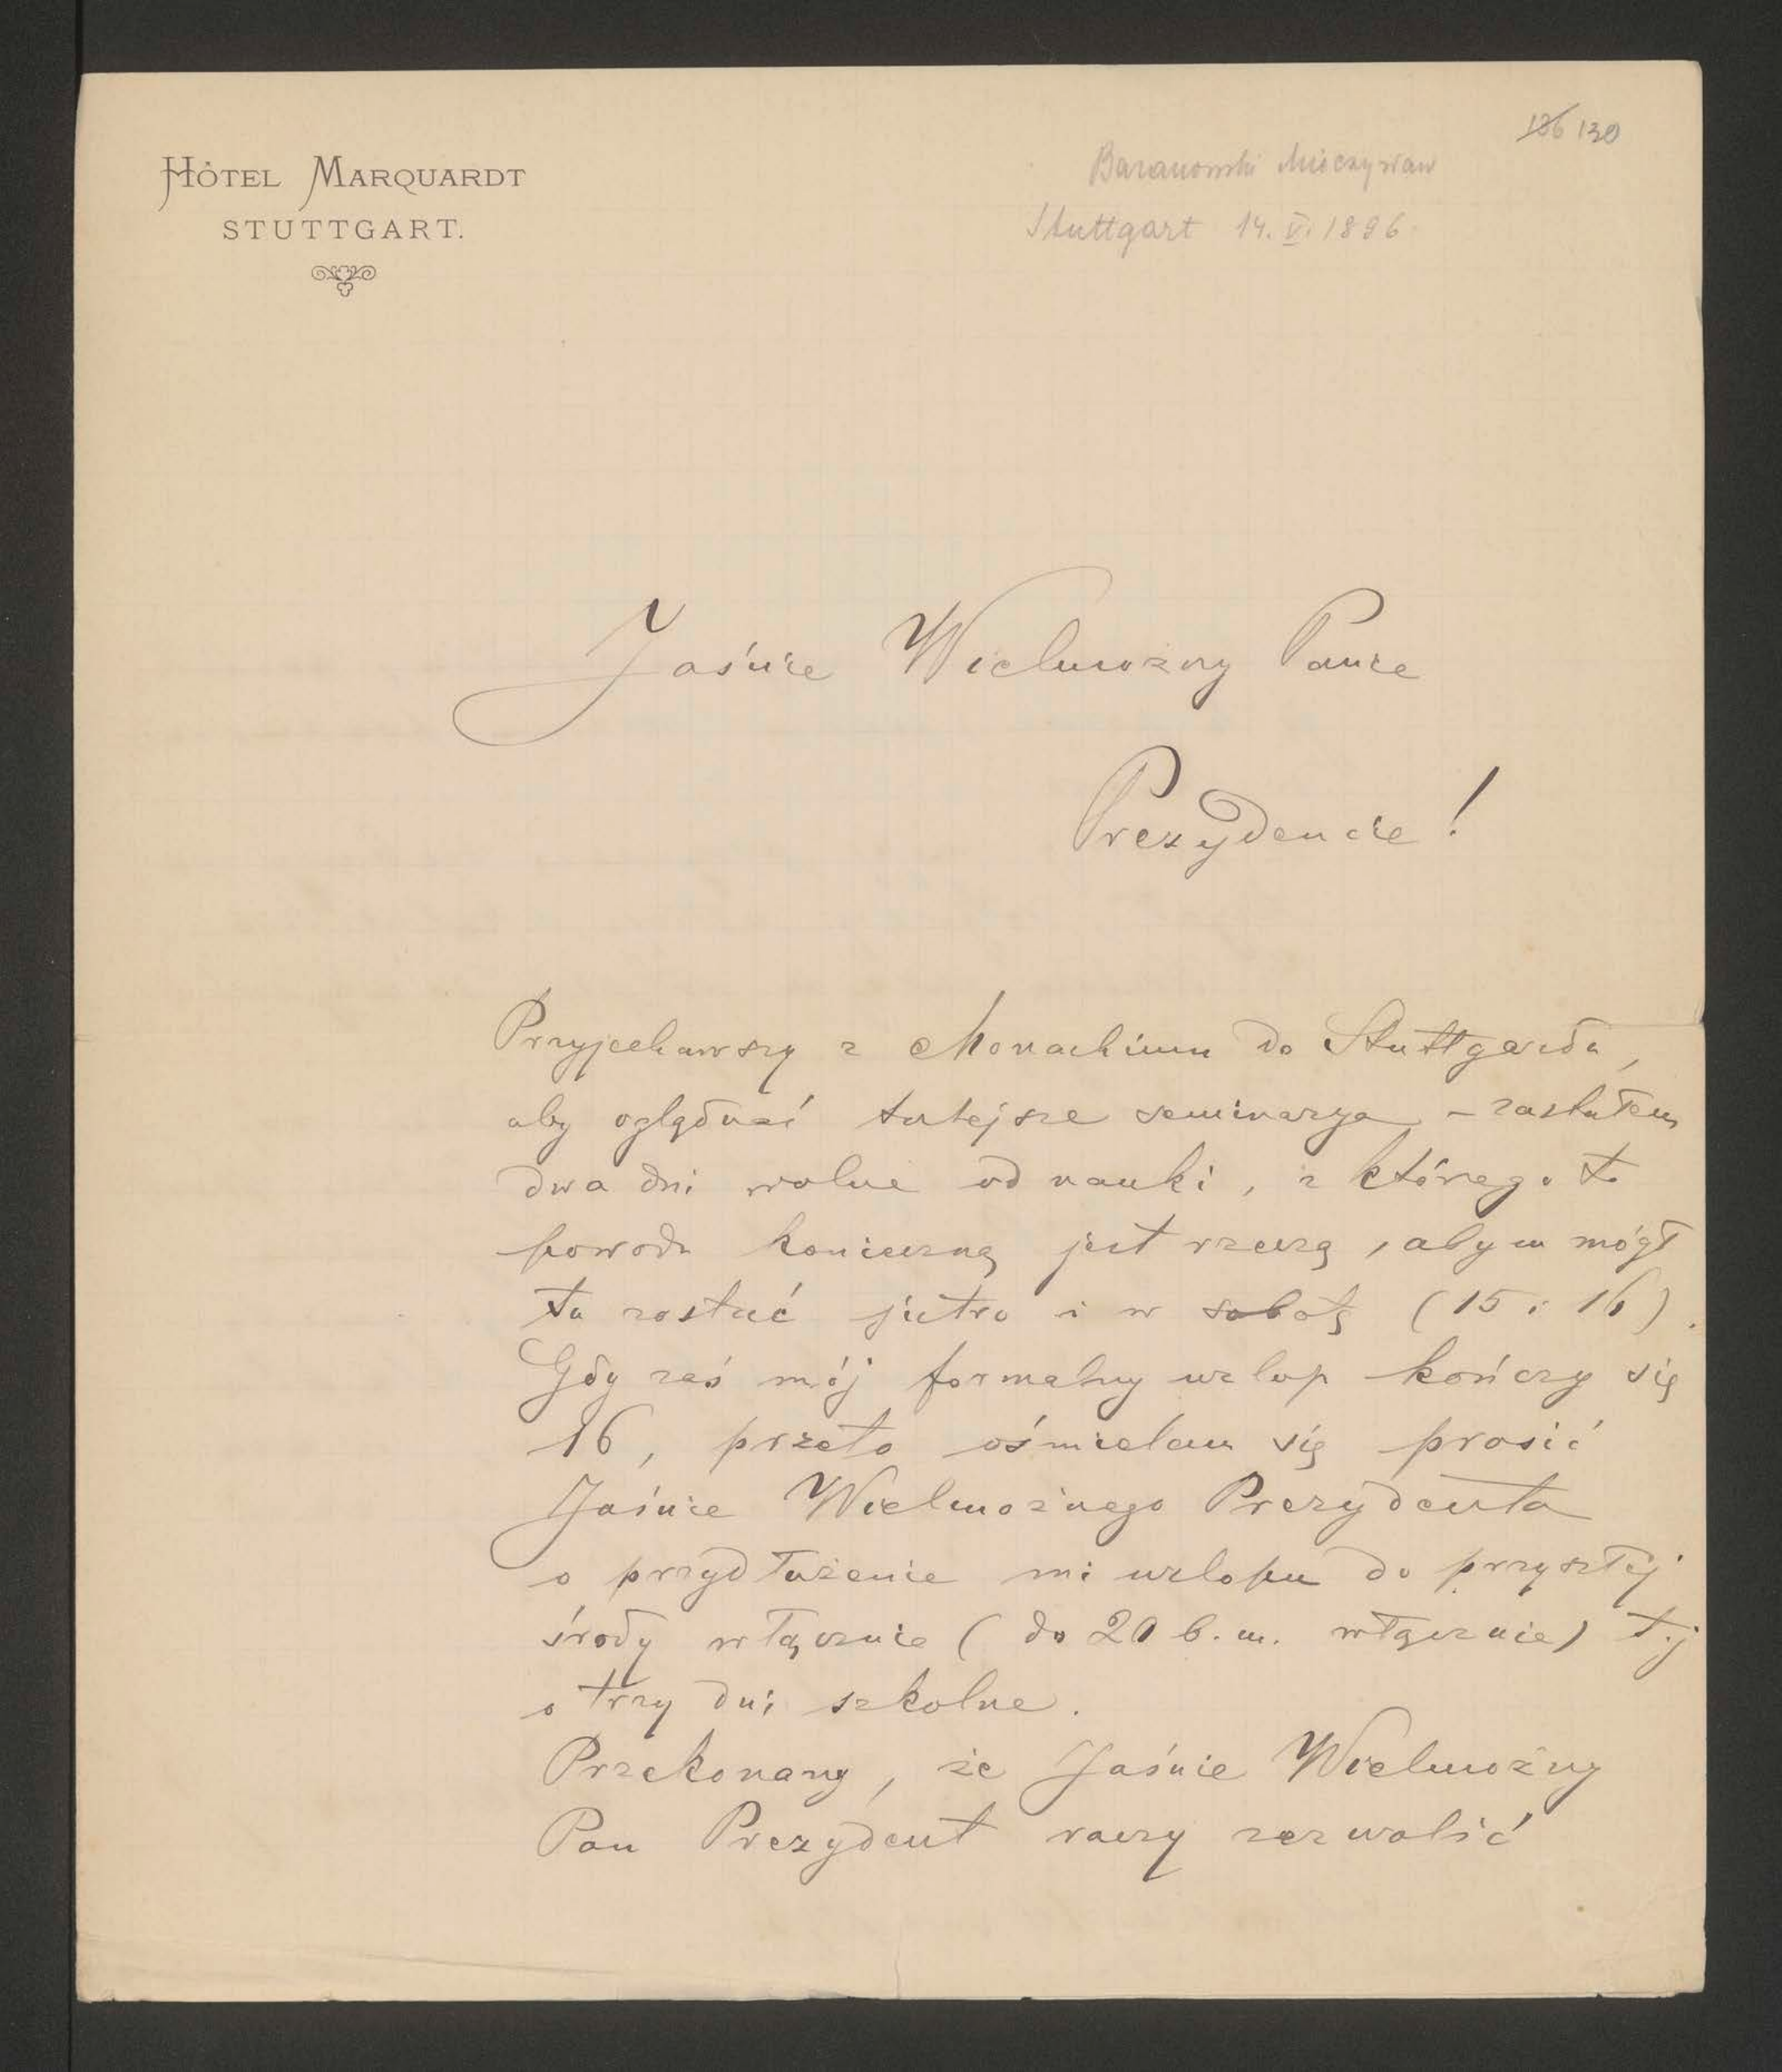 HÔTEL MARQUARDT
STUTTGART.
136 130
Baranowski Mieczysław
Stuttgart 14. V. 1896.
Jaśnie Wielmożny Panie
Prezydencie!
Przyjechawszy z Monachium do Stuttgardu,
aby oglądnąć tutejsze seminarya – zastałem
dwa dni wolne od nauki, z którego to
powodu konieczną jest rzeczą, abym mógł
tu zostać jutro i w sobotę (15 i 16).
Gdy zaś mój formalny urlop kończy się
16, przeto ośmielam się prosić
Jaśnie Wielmożnego Prezydenta
o przydłużenie mi urlopu do przyszłej
środy włącznie (do 20 b. m. włącznie) t.j
o trzy dni szkolne.
Przekonany, że Jaśnie Wielmożny
Pan Prezydent raczy zezwolić